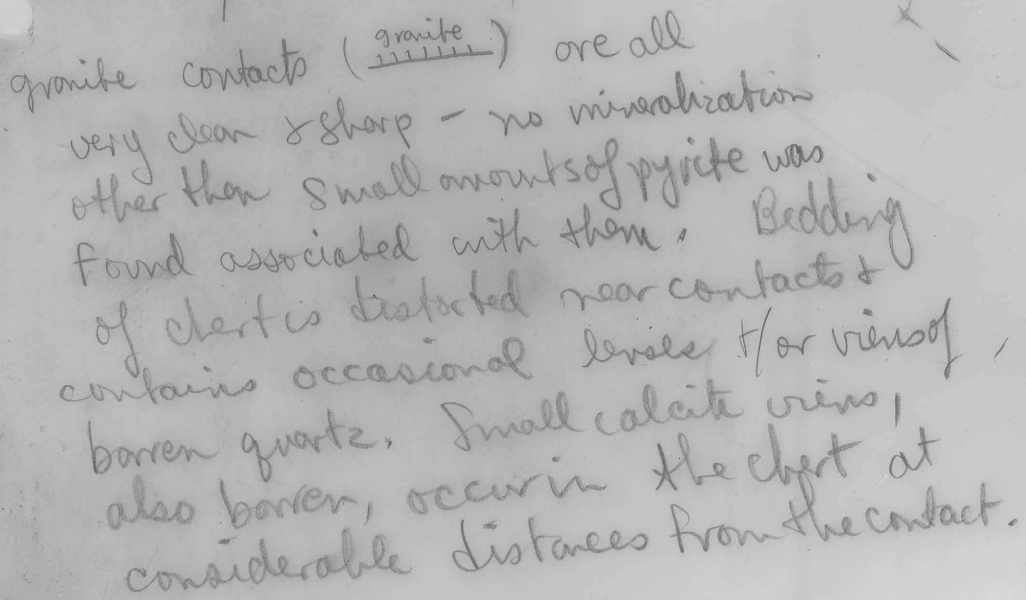 granite contacts (granite) are all
very clean & sharp - no mineralization
other than small amounts of pyrite was
found associated with them. Bedding
of chert is distorted near contacts &
contains occasional lenses &/or viens of
barren quartz. Small calcite viens,
also barren, occur in the chert at
considerable distances from the contact.